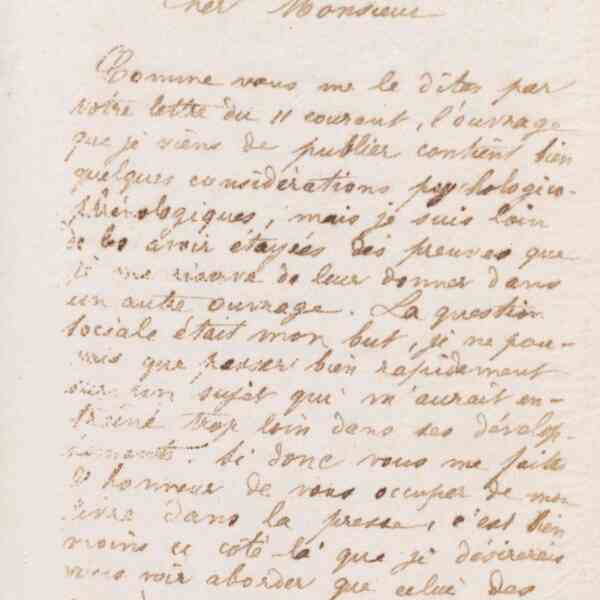 Cher Monsieur
Comme vous me le dites par
votre lettre du 11 courant, l'ouvrage
que je viens de publier contient bien
quelques considérations psychologico-
phrénologiques, mais je suis loin
de les avoir étayées des preuves que
je me réserve de leur donner dans
un autre ouvrage. La question
sociale était mon but, je ne pou-
vais que passer bien rapidement
sur un sujet qui m'aurait en-
traîné trop loin dans ses dévelop-
pements. Si donc vous me faites
l'honneur de vous occuper de mon
livre dans la presse, c'est bien
moins ce côté-là que je désirerais
vous voir aborder que celui des